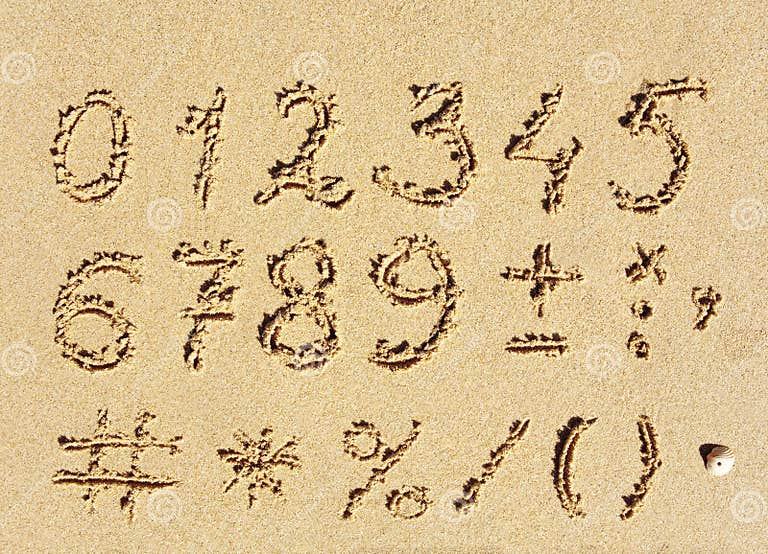 0 1 2 3 4 5
6 7 8 9 + = × : ,
# * % / ( )